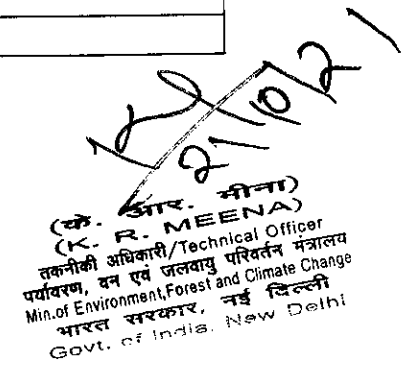 21/10/21
(के. आर. मीना)
(K. R. MEENA)
तकनीकी अधिकारी/Technical Officer
पर्यावरण, वन एवं जलवायु परिवर्तन मंत्रालय
Min.of Environment,Forest and Climate Change
भारत सरकार, नई दिल्ली
Govt. of India, New Delhi